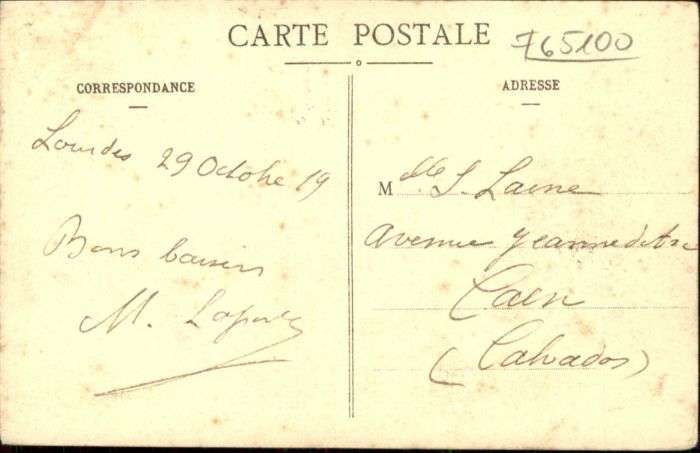 CARTE POSTALE
765100
CORRESPONDANCE
Lourdes 29 Octobre 19
Bons baisers
M.
ADRESSE
Mlle
Avenue Jeanne d'Arc
Caen
(Calvados)